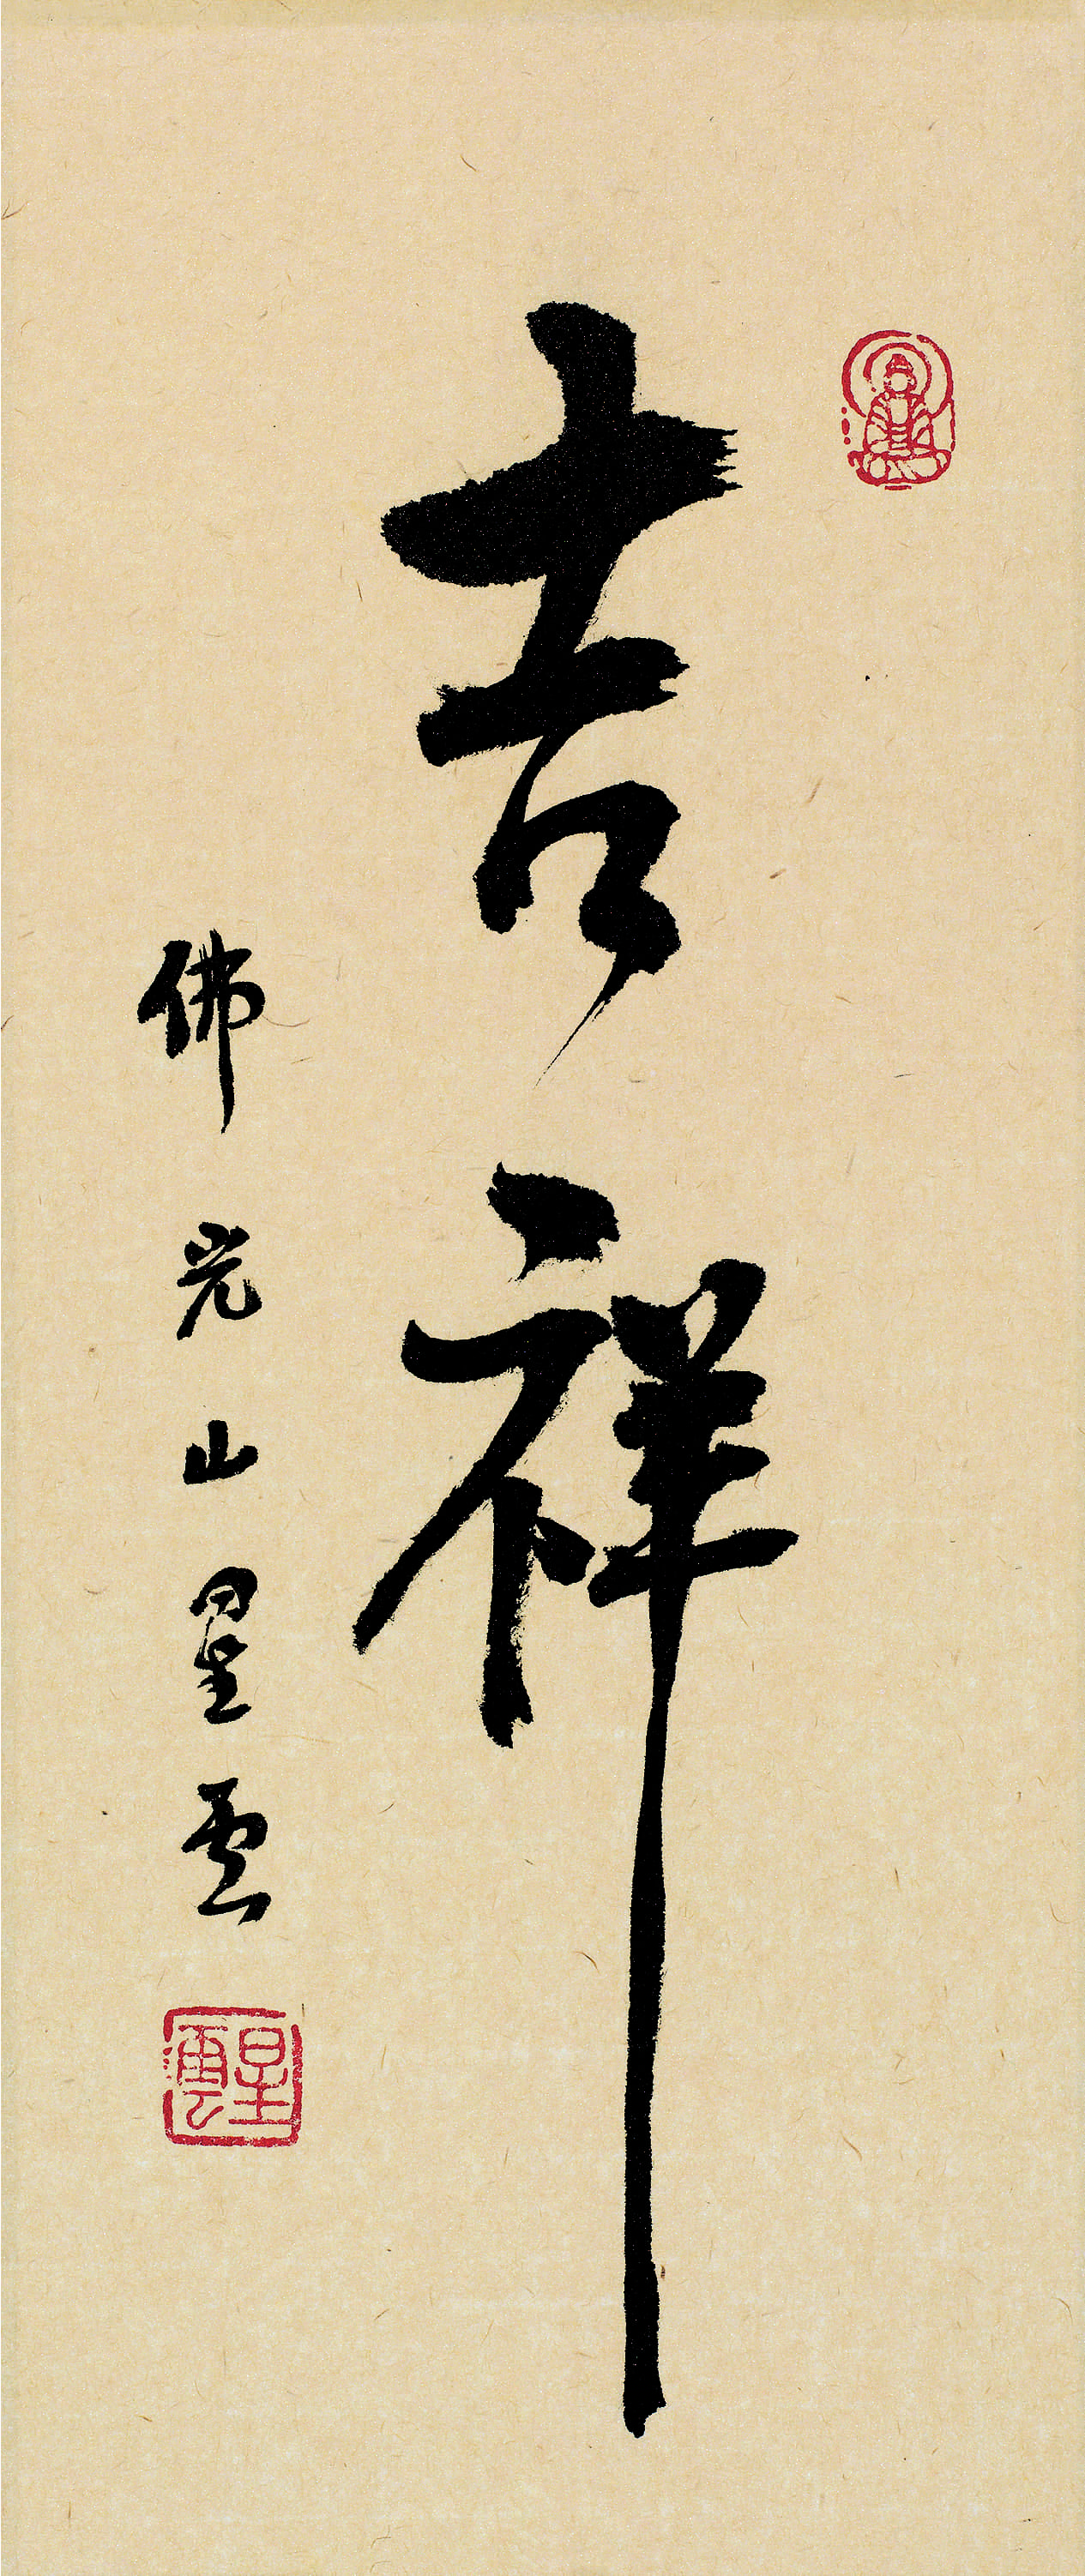 吉祥
佛光山星雲
星雲